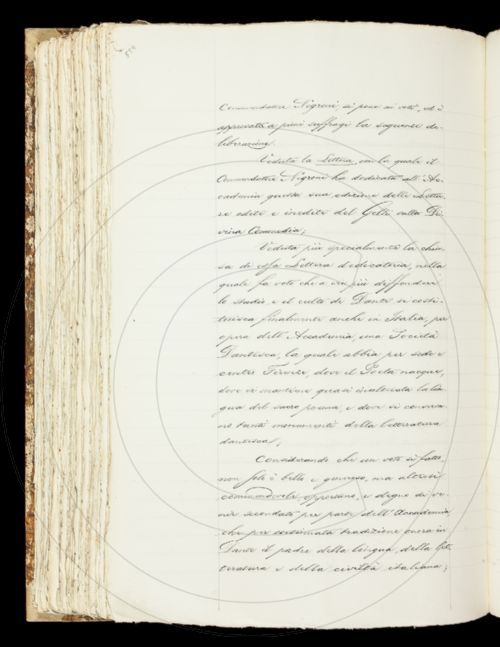 Commendatore Nigroni, si pone ai voti, ed è
approvata a pieni suffragi la seguente de-
liberazione.
Veduta la Lettera, con la quale il
Commendatore Nigroni ha dedicata all'Ac-
cademia questa sua edizione delle Lettu-
re edite e inedite del Gelli sulla Di-
vina Commedia;
Veduta più specialmente la chiu-
sa di essa Lettera dedicatoria, nella
quale fa voto che a vie più diffondere
lo studio, e il culto di Dante si costi-
tuisca finalmente anche in Italia, per
opera dell'Accademia, una Società
Dantesca, la quale abbia per sede e
centro Firenze, dove il Poeta nacque,
dove si mantiene quasi inalterata la lin
gua del sacro poema, e dove si conserva
no tanti monumenti della letteratura
dantesca;
Considerando che un voto sì fatto
non solo è bello e generoso, ma altresì
commendevole, opportuno, e degno di ve-
nir secondato per parte dell'Accademia
che per costumata tradizione onora in
Dante il padre della lingua, della let-
teratura e della civiltà italiana;